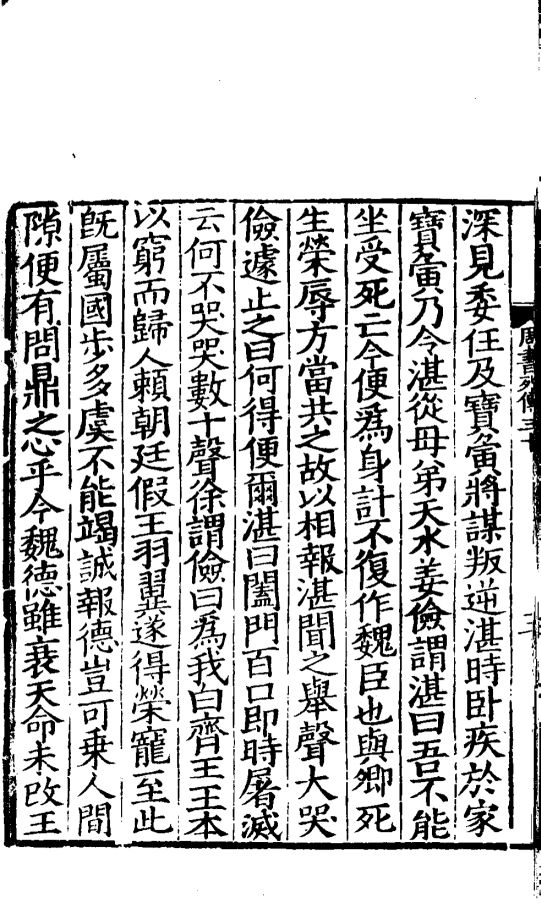 周書列傳三十
深見委任及寶夤將謀叛逆湛時卧疾於家
寶夤乃令湛從母弟天水姜儉謂湛曰吾不能
坐受死亡今便爲身計不復作魏臣也與卿死
生榮辱方當共之故以相報湛聞之舉聲大哭
儉遽止之曰何得便爾湛曰闔門百口即時屠滅
云何不哭哭數十聲徐謂儉曰爲我白齊王王本
以窮而歸人賴朝廷假王羽翼遂得榮寵至此
旣屬國步多虞不能竭誠報德豈可乗人間
隙便有問鼎之心乎今魏德雖衰天命未改王